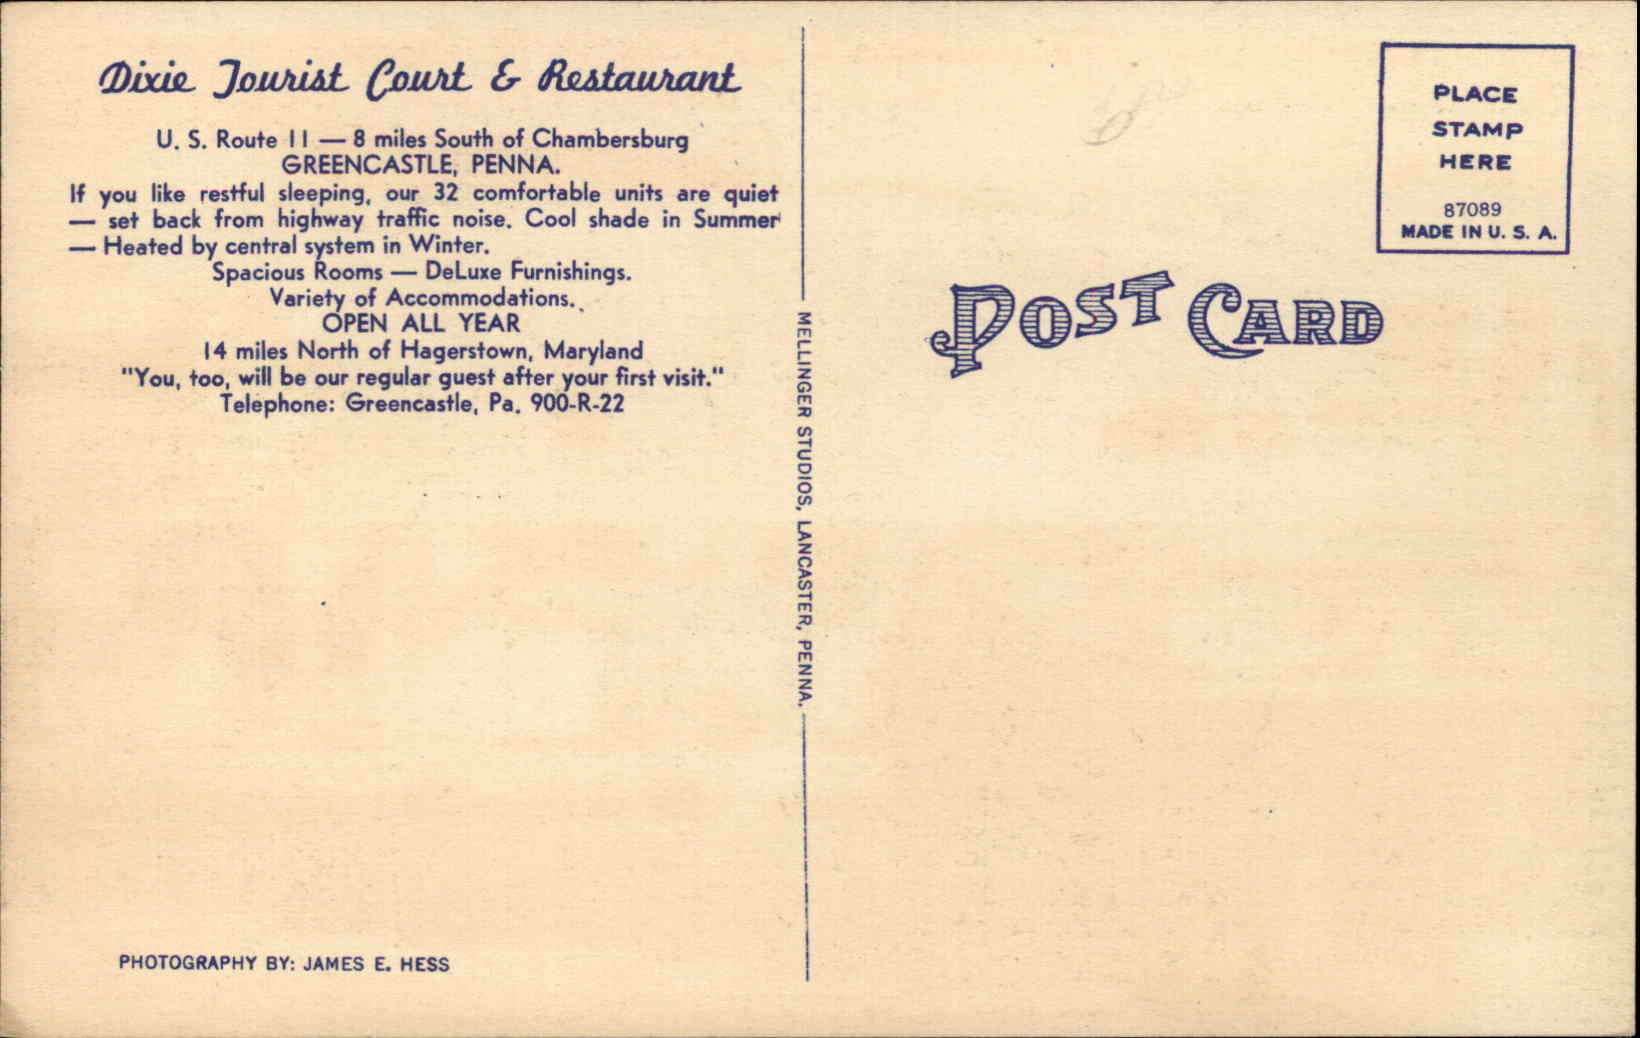 Dixie Tourist Court & Restaurant
U. S. Route 11 — 8 miles South of Chambersburg
GREENCASTLE, PENNA.
If you like restful sleeping, our 32 comfortable units are quiet
— set back from highway traffic noise. Cool shade in Summer
— Heated by central system in Winter.
Spacious Rooms — DeLuxe Furnishings.
Variety of Accommodations.
OPEN ALL YEAR
14 miles North of Hagerstown, Maryland
"You, too, will be our regular guest after your first visit."
Telephone: Greencastle, Pa. 900-R-22
PHOTOGRAPHY BY: JAMES E. HESS
MELLINGER STUDIOS, LANCASTER, PENNA.
POST CARD
PLACE
STAMP
HERE
87089
MADE IN U. S. A.